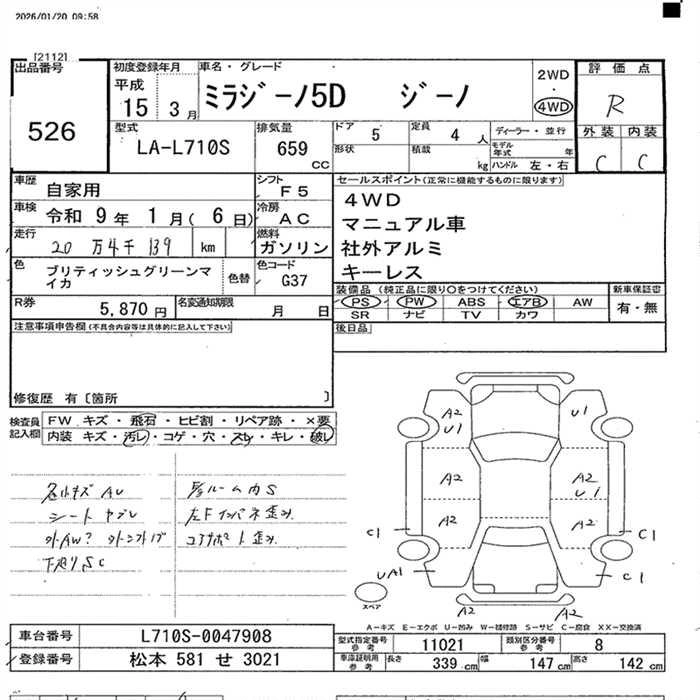 2026/01/20 09:58
[2112]
出品番号
526
初度登録年月
平成
15 3月
車名・グレード
ミラジーノ5D ジーノ
2WD
・
4WD
評価点
R
外装 内装
C C
型式
LA-L710S
排気量
659
CC
ドア
5
定員
4 人
ディーラー・並行
形状
積載
kg
モデル
年式
年
ハンドル 左・右
車歴
自家用
シフト
F5
車検
令和 9年 1月( 6日)
冷房
AC
走行
20 万4千 139
km
燃料
ガソリン
色
ブリティッシュグリーンマ
イカ
色替
色コード
G37
R券
5,870 円
名変通知期限
月 日
セールスポイント(正常に機能するものに限ります)
4WD
マニュアル車
社外アルミ
キーレス
装備品 (純正品に限り○をつけてください)
PS PW ABS エアB AW
SR ナビ TV カワ
新車保証書
有・無
後日品
注意事項申告欄(不具合内容等は具体的に記入して下さい)
修復歴 有〔箇所 〕
検査員
記入欄
FW キズ・飛石・ヒビ割・リペア跡・×要
内装 キズ・汚レ・コゲ・穴・スレ・キレ・破レ
シート ヤブレ
外AW? 外シフトノブ
下廻りSC
ルーム内S
左Fインパネ歪み
コアサポート歪み
A2
U1
U1
A2
A2
U1
A2
A2
C1
C1
UA1
C1
A2
A2
スペア
A-キズ E-エクボ U-凹み W-補修跡 S-サビ C-腐食 XX-交換済
車台番号
L710S-0047908
登録番号
松本 581 せ 3021
型式指定番号
参考
11021
類別区分番号
参考
8
車庫証明用
参考
長さ
339 cm
幅
147 cm
高さ
142 cm